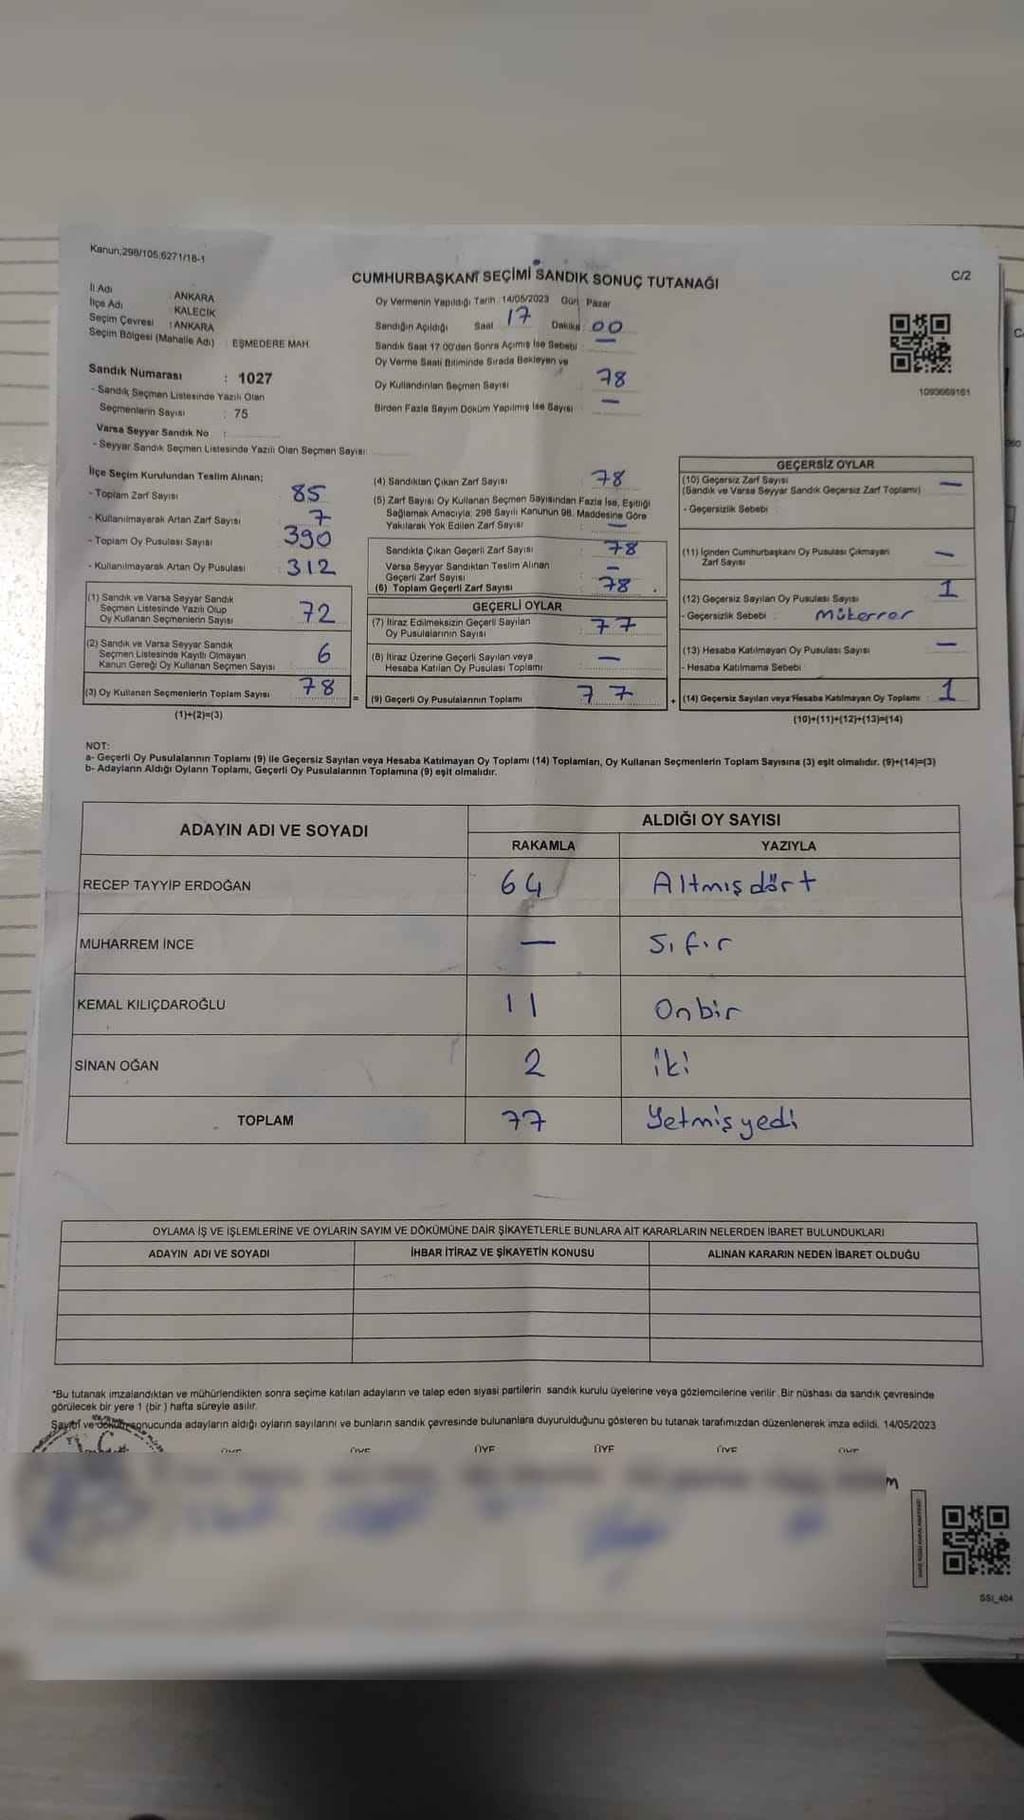 Kanun;298/105,6271/18-1
CUMHURBAŞKANI SEÇİMİ SANDIK SONUÇ TUTANAĞI
C/2
İl Adı : ANKARA
İlçe Adı : KALECİK
Seçim Çevresi : ANKARA
Seçim Bölgesi (Mahalle Adı) : EŞMEDERE MAH.
Sandık Numarası : 1027
- Sandık Seçmen Listesinde Yazılı Olan
Seçmenlerin Sayısı : 75
Varsa Seyyar Sandık No :
- Seyyar Sandık Seçmen Listesinde Yazılı Olan Seçmen Sayısı:
Oy Vermenin Yapıldığı Tarih : 14/05/2023 Gün : Pazar
Sandığın Açıldığı Saat : 17 Dakika : 00
Sandık Saat 17:00'den Sonra Açımış İse Sebebi : —
Oy Verme Saati Bitiminde Sırada Bekleyen ve
Oy Kullandırılan Seçmen Sayısı : 78
Birden Fazla Sayım Döküm Yapılmış İse Sayısı : —
1093669161
İlçe Seçim Kurulundan Teslim Alınan;
- Toplam Zarf Sayısı : 85
- Kullanılmayarak Artan Zarf Sayısı : 7
- Toplam Oy Pusulası Sayısı : 390
- Kullanılmayarak Artan Oy Pusulası : 312
(1) Sandık ve Varsa Seyyar Sandık
Seçmen Listesinde Yazılı Olup
Oy Kullanan Seçmenlerin Sayısı 72
(2) Sandık ve Varsa Seyyar Sandık
Seçmen Listesinde Kayıtlı Olmayan
Kanun Gereği Oy Kullanan Seçmen Sayısı 6
(3) Oy Kullanan Seçmenlerin Toplam Sayısı 78
(1)+(2)=(3)
(4) Sandıktan Çıkan Zarf Sayısı : 78
(5) Zarf Sayısı Oy Kullanan Seçmen Sayısından Fazla İse, Eşitliği
Sağlamak Amacıyla; 298 Sayılı Kanunun 98. Maddesine Göre
Yakılarak Yok Edilen Zarf Sayısı : —
Sandıkta Çıkan Geçerli Zarf Sayısı : 78
Varsa Seyyar Sandıktan Teslim Alınan
Geçerli Zarf Sayısı : —
(6) Toplam Geçerli Zarf Sayısı : 78
GEÇERLİ OYLAR
(7) İtiraz Edilmeksizin Geçerli Sayılan
Oy Pusulalarının Sayısı : 77
(8) İtiraz Üzerine Geçerli Sayılan veya
Hesaba Katılan Oy Pusulası Toplamı : —
= (9) Geçerli Oy Pusulalarının Toplamı 77
GEÇERSİZ OYLAR
(10) Geçersiz Zarf Sayısı : —
(Sandık ve Varsa Seyyar Sandık Geçersiz Zarf Toplamı)
- Geçersizlik Sebebi :
(11) İçinden Cumhurbaşkanı Oy Pusulası Çıkmayan
Zarf Sayısı : —
(12) Geçersiz Sayılan Oy Pusulası Sayısı : 1
- Geçersizlik Sebebi : Mükerrer
(13) Hesaba Katılmayan Oy Pusulası Sayısı : —
- Hesaba Katılmama Sebebi :
+ (14) Geçersiz Sayılan veya Hesaba Katılmayan Oy Toplamı : 1
(10)+(11)+(12)+(13)=(14)
NOT:
a- Geçerli Oy Pusulalarının Toplamı (9) ile Geçersiz Sayılan veya Hesaba Katılmayan Oy Toplamı (14) Toplamları, Oy Kullanan Seçmenlerin Toplam Sayısına (3) eşit olmalıdır. (9)+(14)=(3)
b- Adayların Aldığı Oyların Toplamı, Geçerli Oy Pusulalarının Toplamına (9) eşit olmalıdır.
ADAYIN ADI VE SOYADI
ALDIĞI OY SAYISI
RAKAMLA YAZIYLA
RECEP TAYYİP ERDOĞAN 64 Altmış dört
MUHARREM İNCE — Sıfır
KEMAL KILIÇDAROĞLU 11 Onbir
SİNAN OĞAN 2 iki
TOPLAM 77 Yetmiş yedi
OYLAMA İŞ VE İŞLEMLERİNE VE OYLARIN SAYIM VE DÖKÜMÜNE DAİR ŞİKAYETLERLE BUNLARA AİT KARARLARIN NELERDEN İBARET BULUNDUKLARI
ADAYIN ADI VE SOYADI İHBAR İTİRAZ VE ŞİKAYETİN KONUSU ALINAN KARARIN NEDEN İBARET OLDUĞU
*Bu tutanak imzalandıktan ve mühürlendikten sonra seçime katılan adayların ve talep eden siyasi partilerin sandık kurulu üyelerine veya gözlemcilerine verilir. Bir nüshası da sandık çevresinde
görülecek bir yere 1 (bir ) hafta süreyle asılır.
Sayım ve döküm sonucunda adayların aldığı oyların sayılarını ve bunların sandık çevresinde bulunanlara duyurulduğunu gösteren bu tutanak tarafımızdan düzenlenerek imza edildi. 14/05/2023
ÜYE ÜYE ÜYE ÜYE ÜYE ÜYE
SSI_404